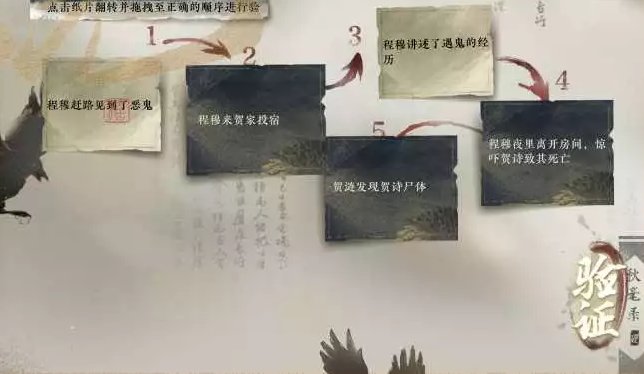 点击纸片翻转并拖拽至正确的顺序进行验
1
2
3
4
5
程穆赶路见到了恶鬼
程穆来贺家投宿
程穆讲述了遇鬼的经
历
程穆夜里离开房间，惊
吓贺诗致其死亡
贺涟发现贺诗尸体
验证
秋毫